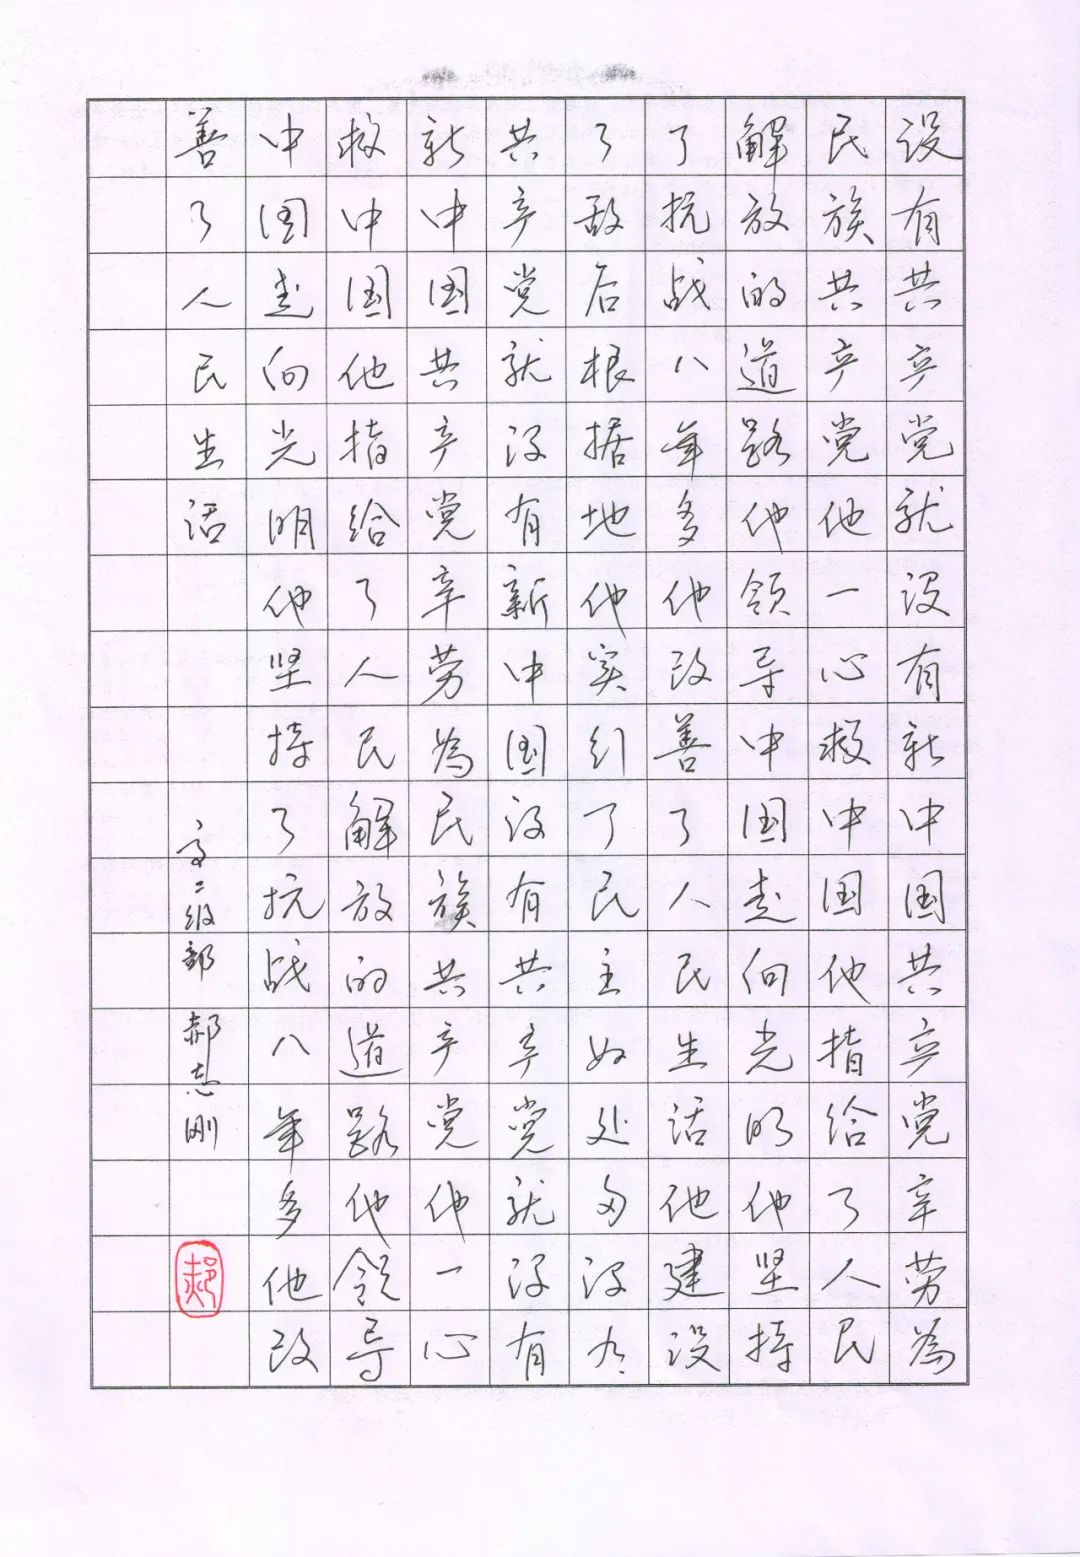 没有共产党就没有新中国共产党辛劳為
民族共产党他一心救中国他指给了人民
解放的道路他领导中国走向光明他坚持
了抗战八年多他改善了人民生活他建设
了敌后根据地他实行了民主好处多没有
共产党就没有新中国没有共产党就没有
新中国共产党辛劳為民族共产党他一心
救中国他指给了人民解放的道路他领导
中国走向光明他坚持了抗战八年多他改
善了人民生活
高二级部 郝志刚
郝